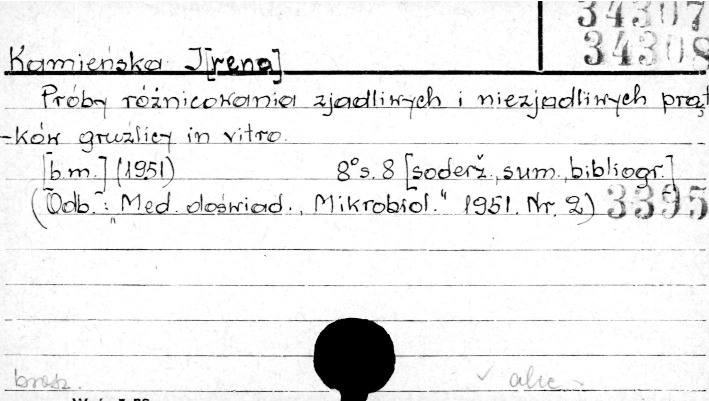 34307
34308
Kamieńska I[rena]
Próby różnicowania zjadliwych i niezjadliwych prąt
-ków gruźlicy in vitro.
[b.m.] (1951) 8° s. 8 [soderž., sum., bibliogr.]
(Odb.: „Med. doświad., Mikrobiol." 1951. Nr. 2) 3395
brosz. ✓ alic